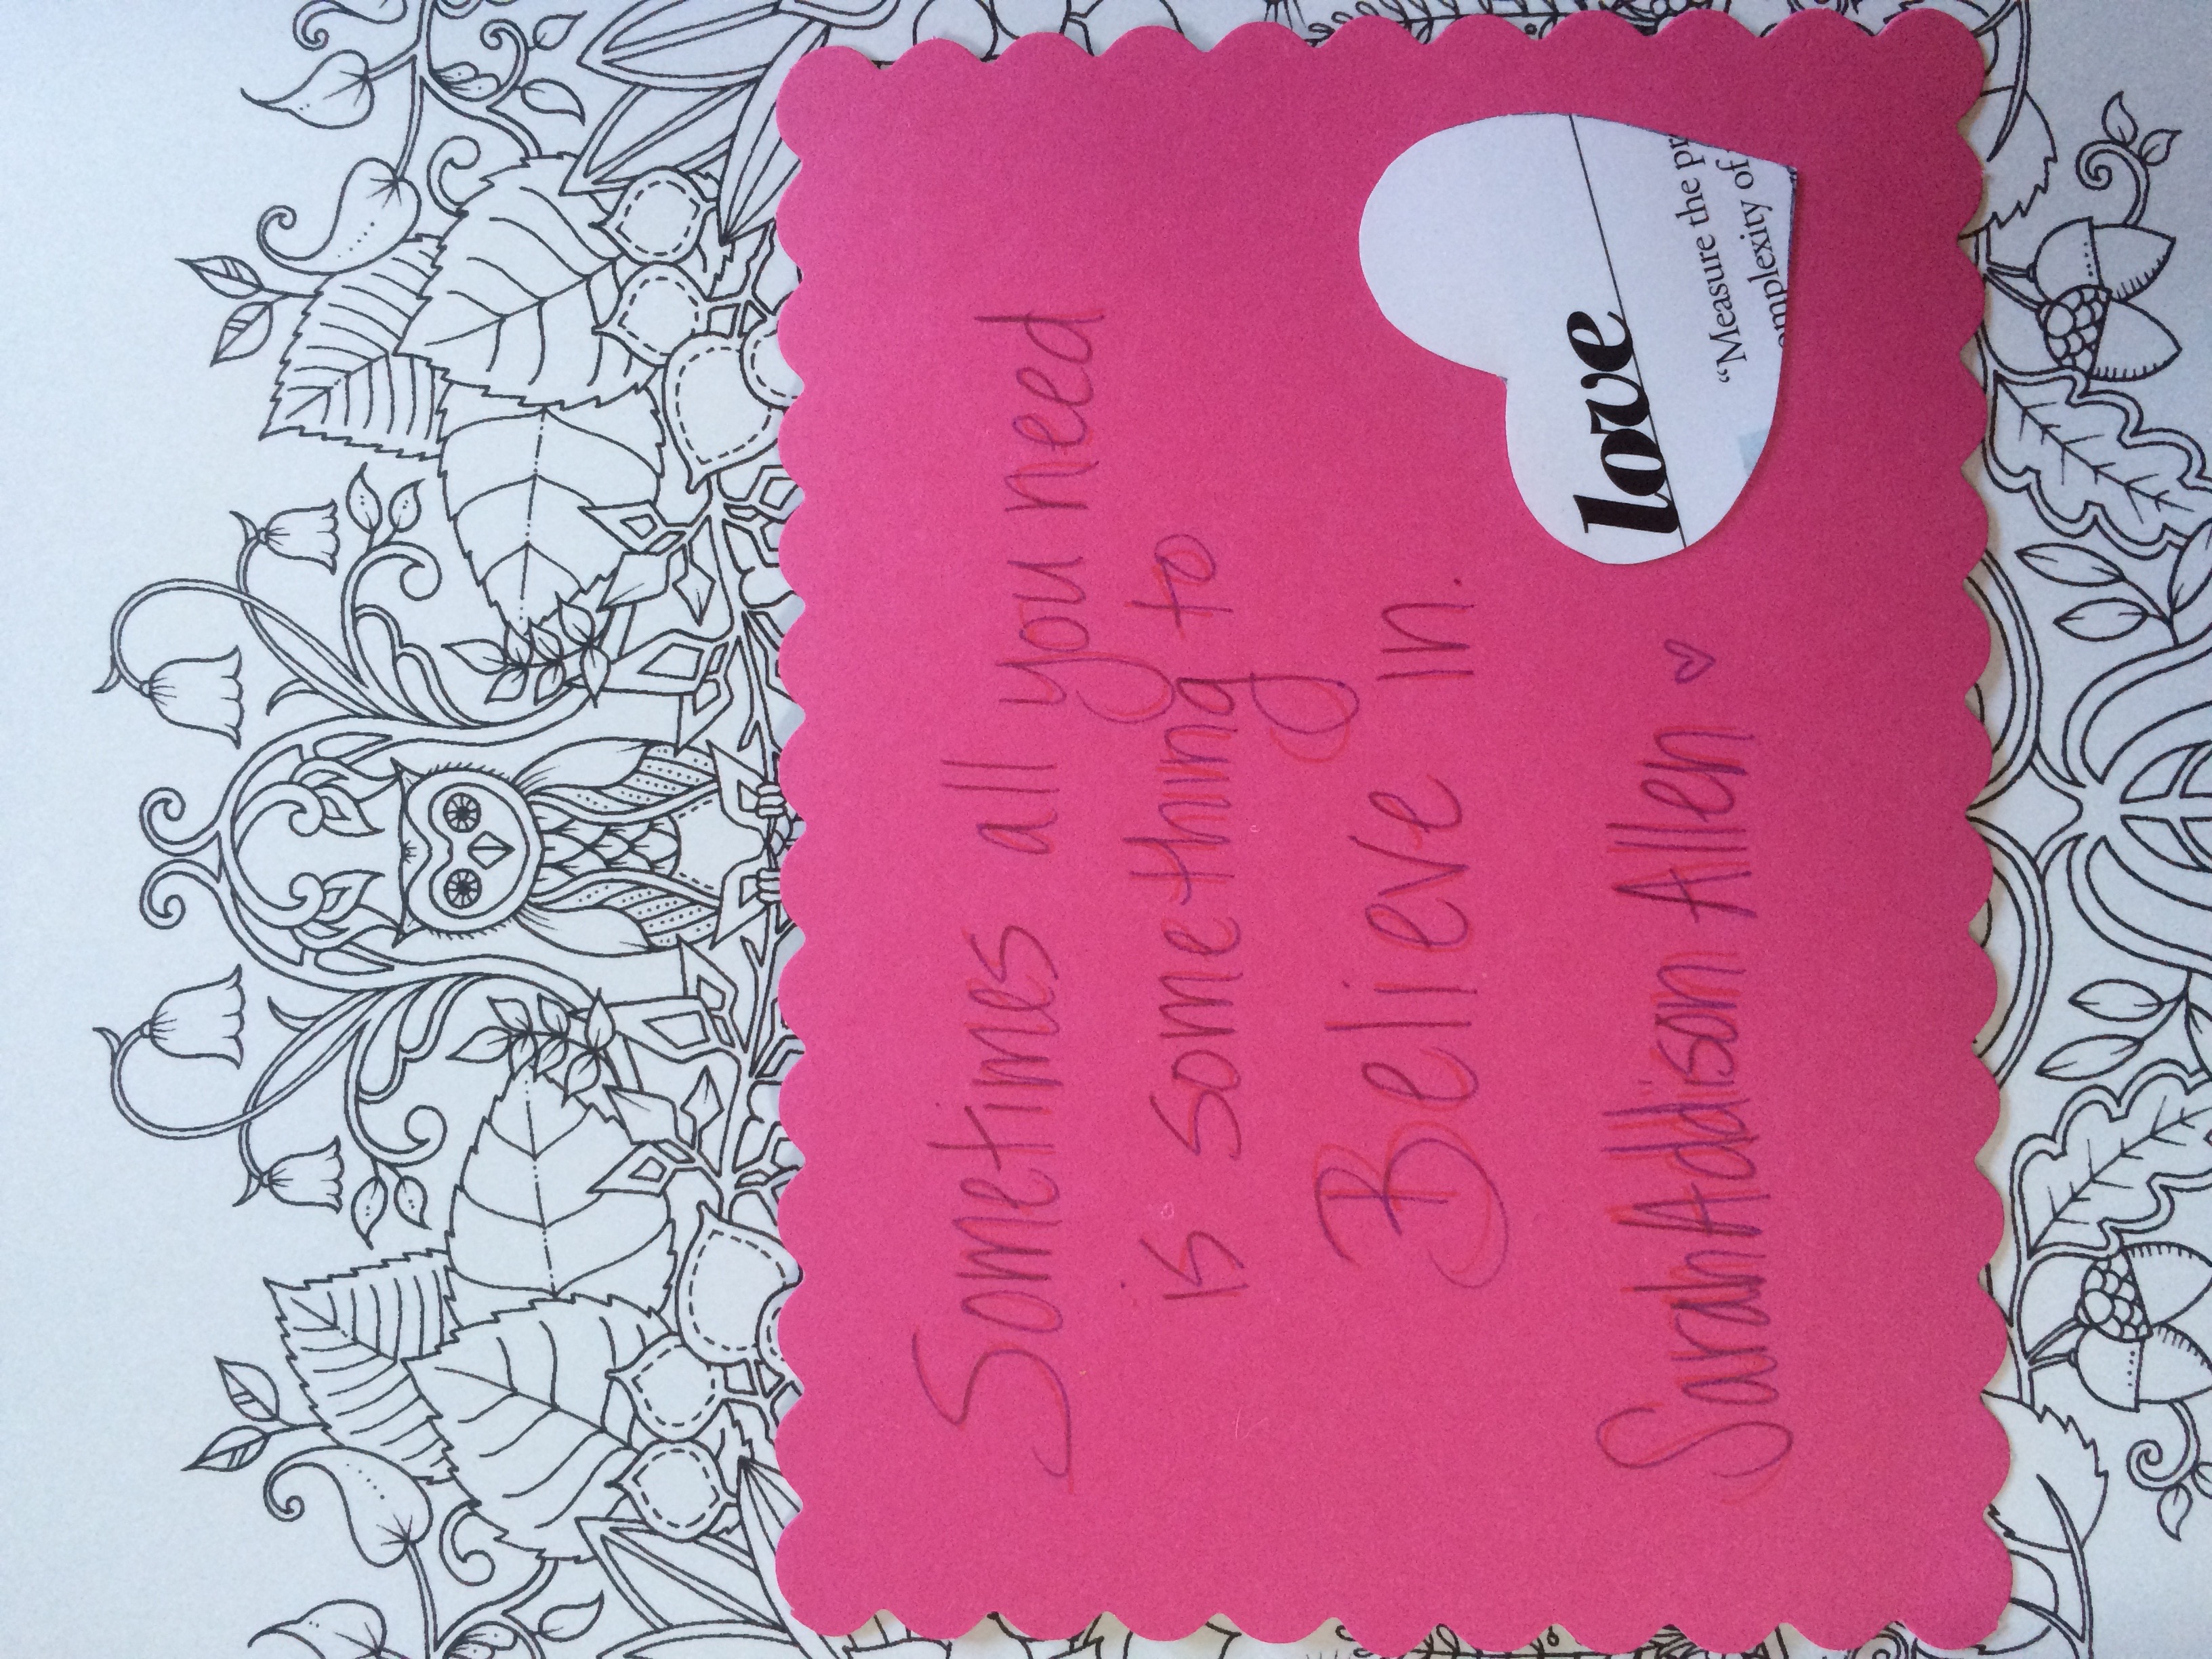 Sometimes all you need
is something to
Believe in.
Sarah Addison Allen
love
"Measure the pr
omplexity of